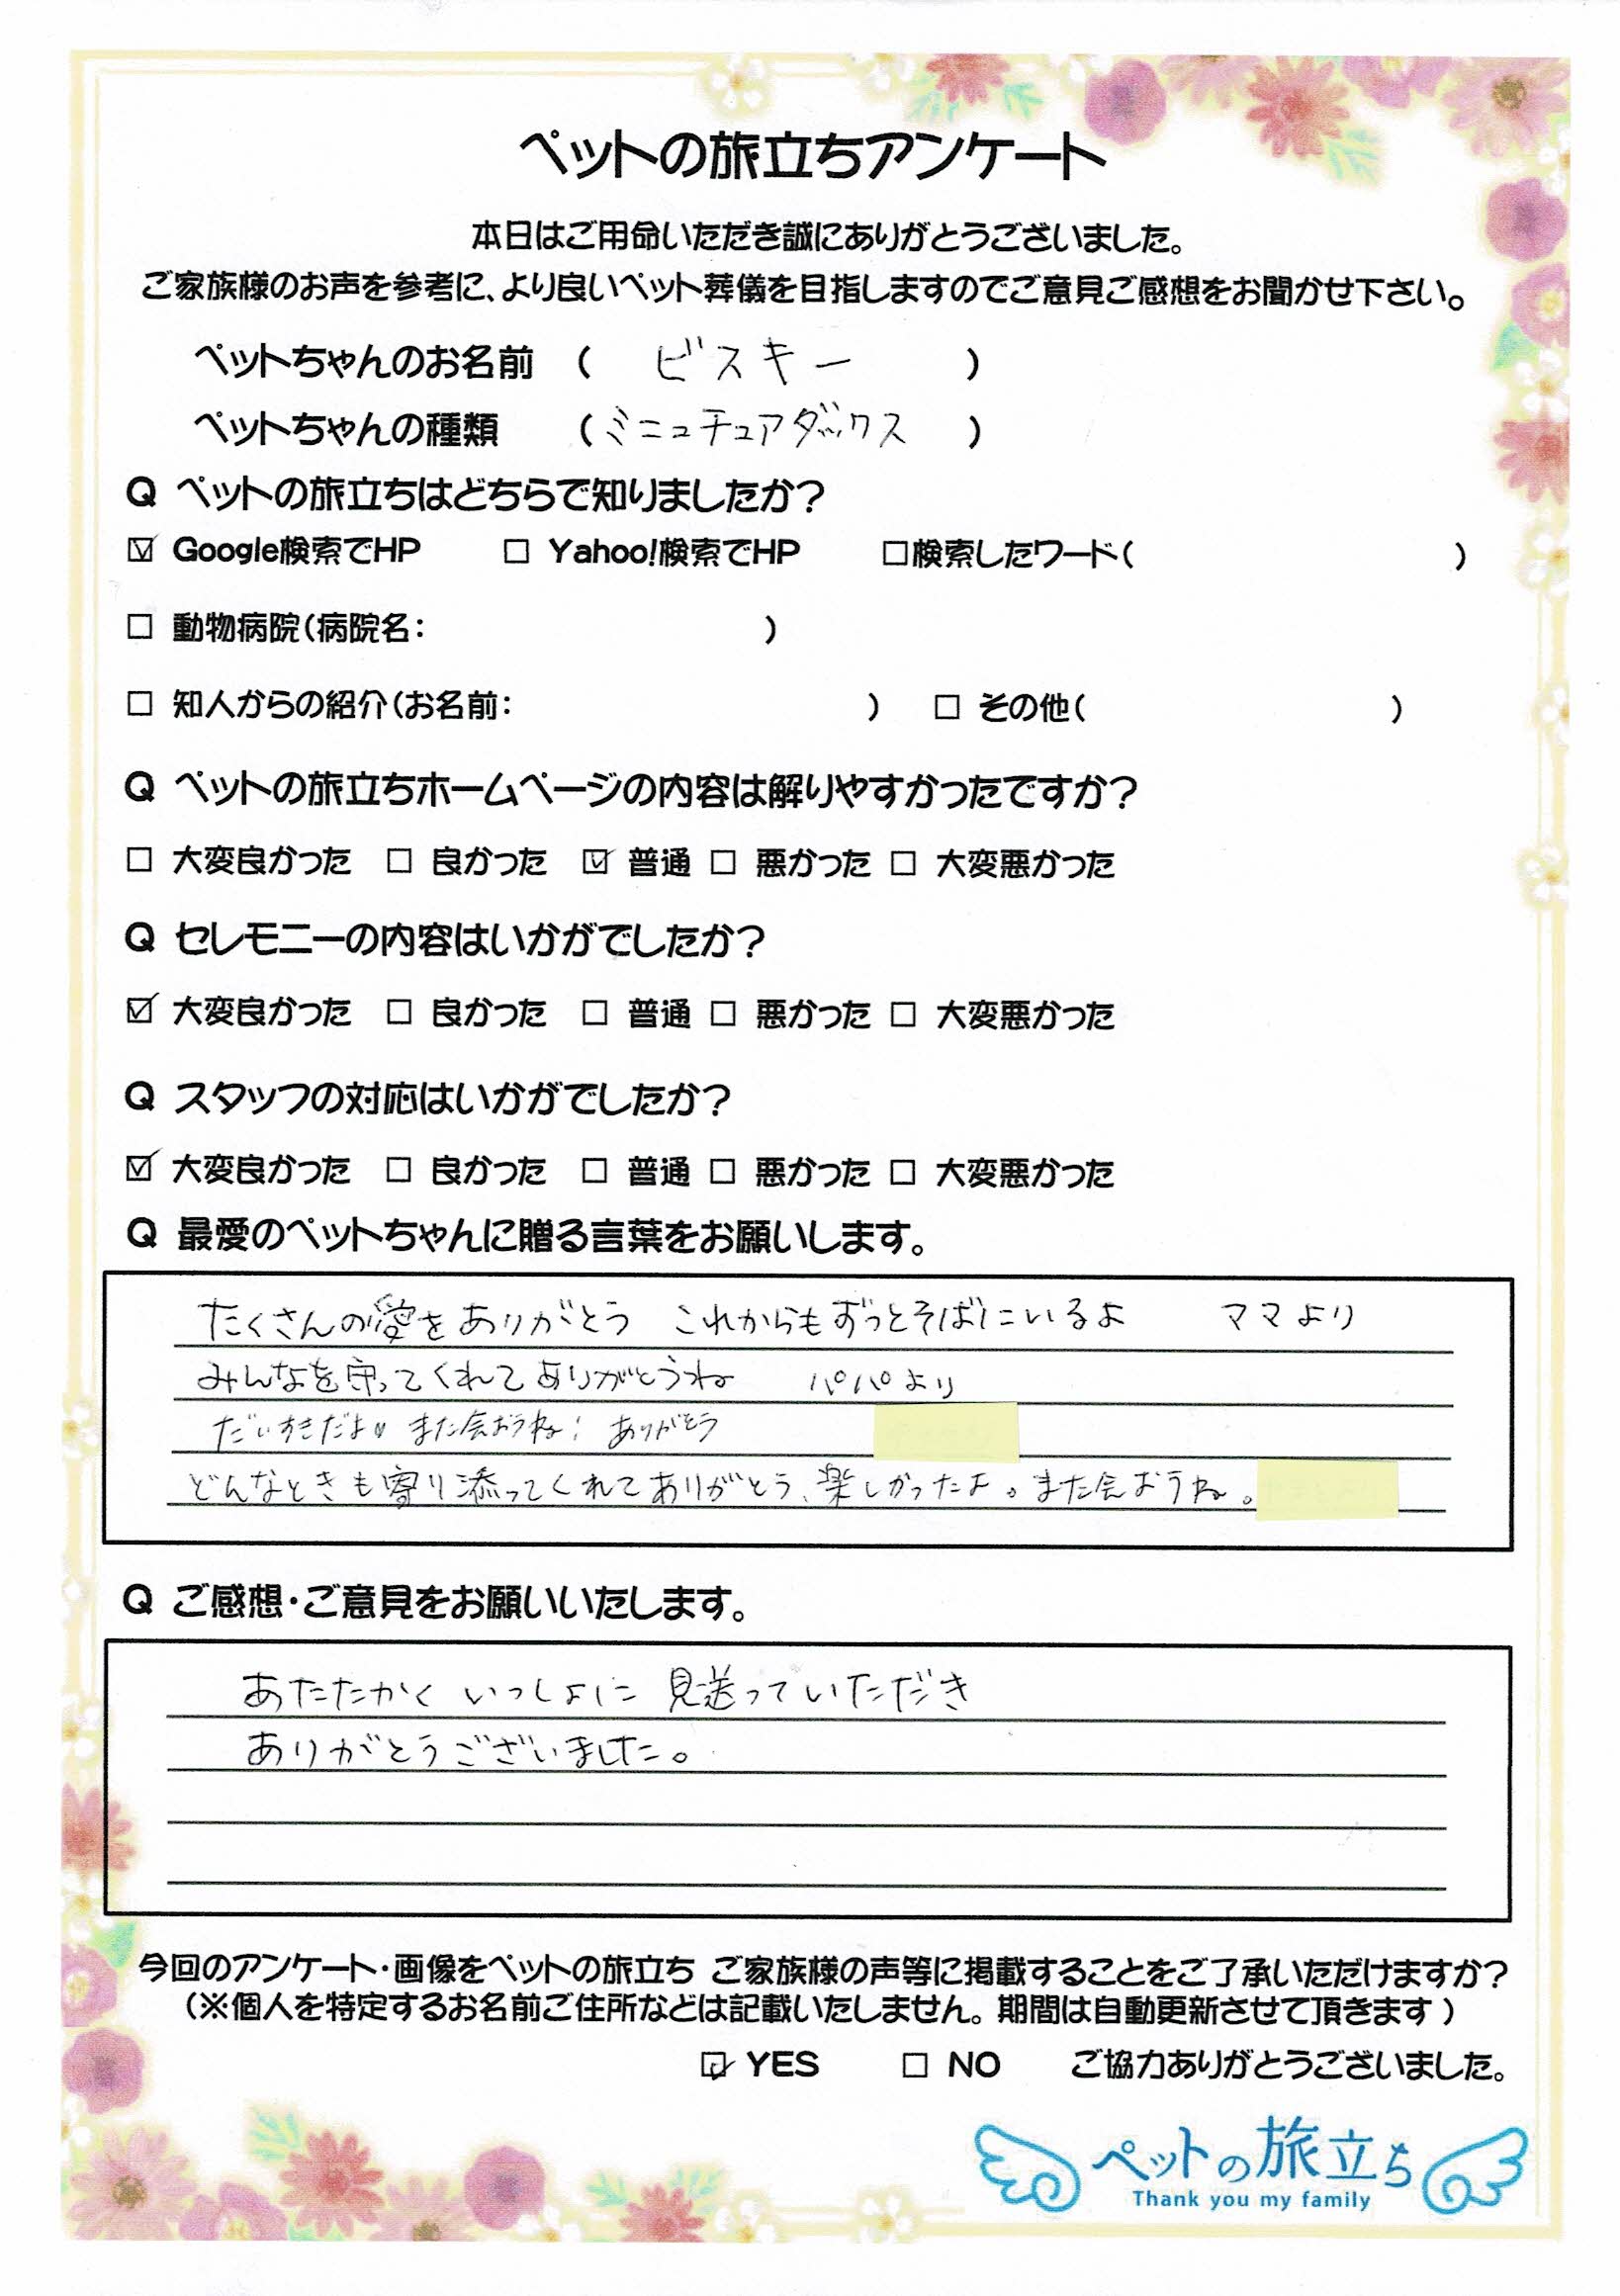 ペットの旅立ちアンケート
本日はご用命いただき誠にありがとうございました。
ご家族様のお声を参考に、より良いペット葬儀を目指しますのでご意見ご感想をお聞かせ下さい。
ペットちゃんのお名前 ( ビスキー )
ペットちゃんの種類 (ミニュチュアダックス )
Q ペットの旅立ちはどちらで知りましたか?
☑ Google検索でHP □ Yahoo!検索でHP □検索したワード( )
□ 動物病院(病院名: )
□ 知人からの紹介(お名前: ) □ その他( )
Q ペットの旅立ちホームページの内容は解りやすかったですか?
□ 大変良かった □ 良かった ☑ 普通 □ 悪かった □ 大変悪かった
Q セレモニーの内容はいかがでしたか?
☑ 大変良かった □ 良かった □ 普通 □ 悪かった □ 大変悪かった
Q スタッフの対応はいかがでしたか?
☑ 大変良かった □ 良かった □ 普通 □ 悪かった □ 大変悪かった
Q 最愛のペットちゃんに贈る言葉をお願いします。
たくさんの愛をありがとう これからもずっとそばにいるよ ママより
みんなを守ってくれてありがとうね パパより
だいすきだよ また会おうね! ありがとう
どんなときも寄り添ってくれてありがとう、楽しかったよ。また会おうね。
Q ご感想・ご意見をお願いいたします。
あたたかく いっしょに 見送っていただき
ありがとうございました。
今回のアンケート・画像をペットの旅立ち ご家族様の声等に掲載することをご了承いただけますか?
(※個人を特定するお名前ご住所などは記載いたしません。期間は自動更新させて頂きます)
☑ YES □ NO ご協力ありがとうございました。
ペットの旅立ち
Thank you my family